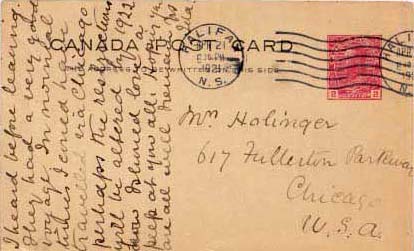 I heard before leaving.
They had a very good
voyage. In normal
times I could have
travelled via Chicago
perhaps the restrictions
will be altered by 1922
how I should love a
peep at you all. Hoping
are all well
CANADA POST CARD
THE ADDRESS TO BE WRITTEN ON THIS SIDE
HALIFAX
21
1921
N.S.
HALIFAX
N.
Mrs Holinger
617 Fullerton Parkway
Chicago
U.S.A.